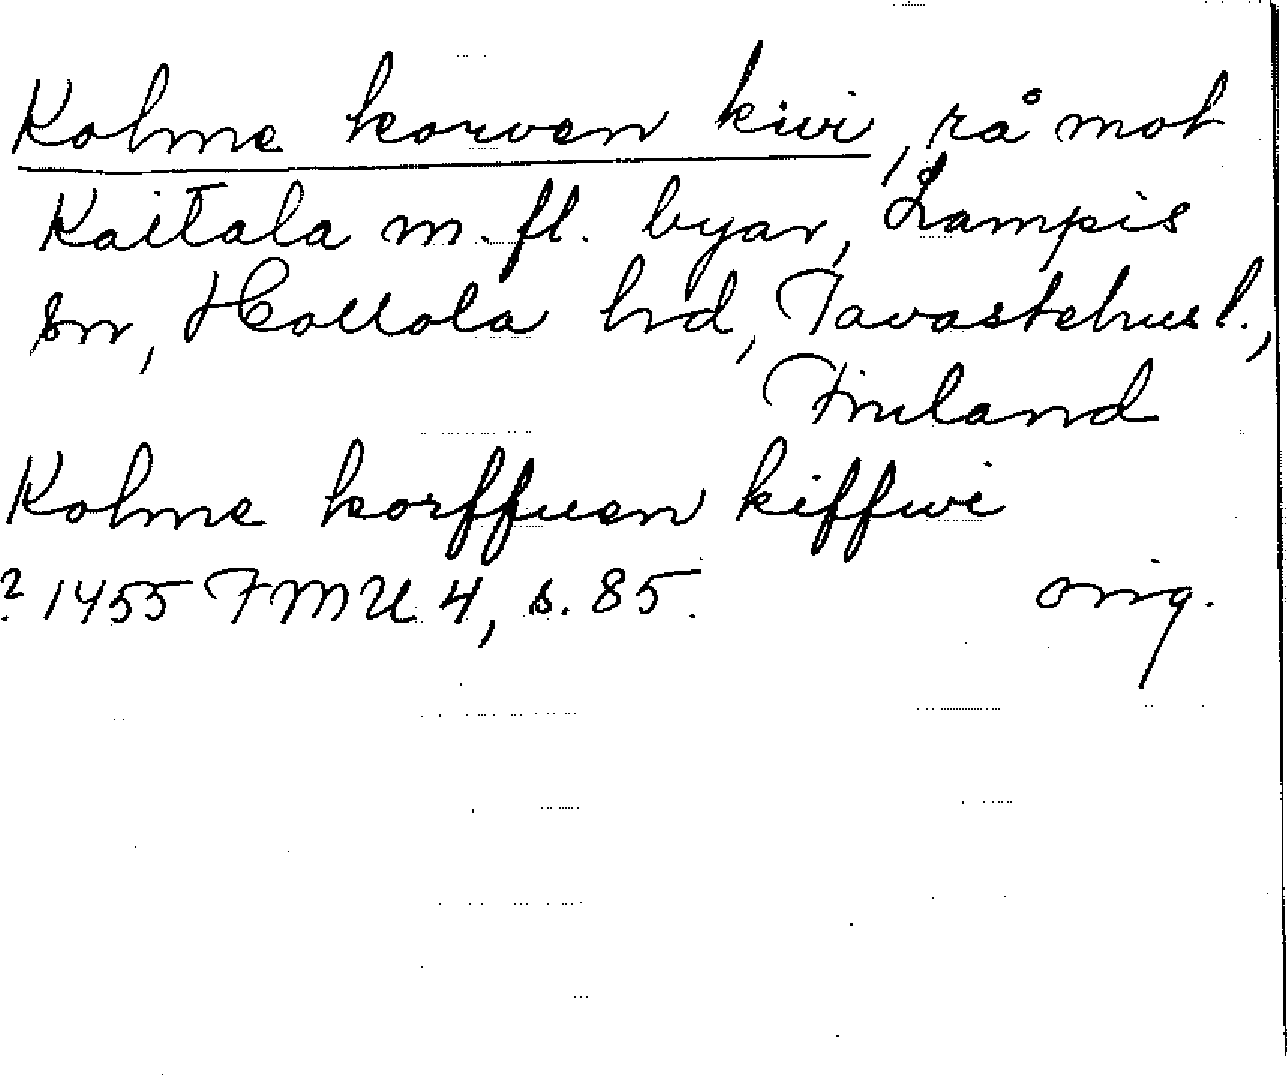 Kolme korven kivi, rå mot
Kaitala m. fl. byar, Lampis
sn, Hollola hd, Tavastehus l.,
Finland
Kolme korffuen kiffwi
? 1455 FMU 4, s. 85. orig.